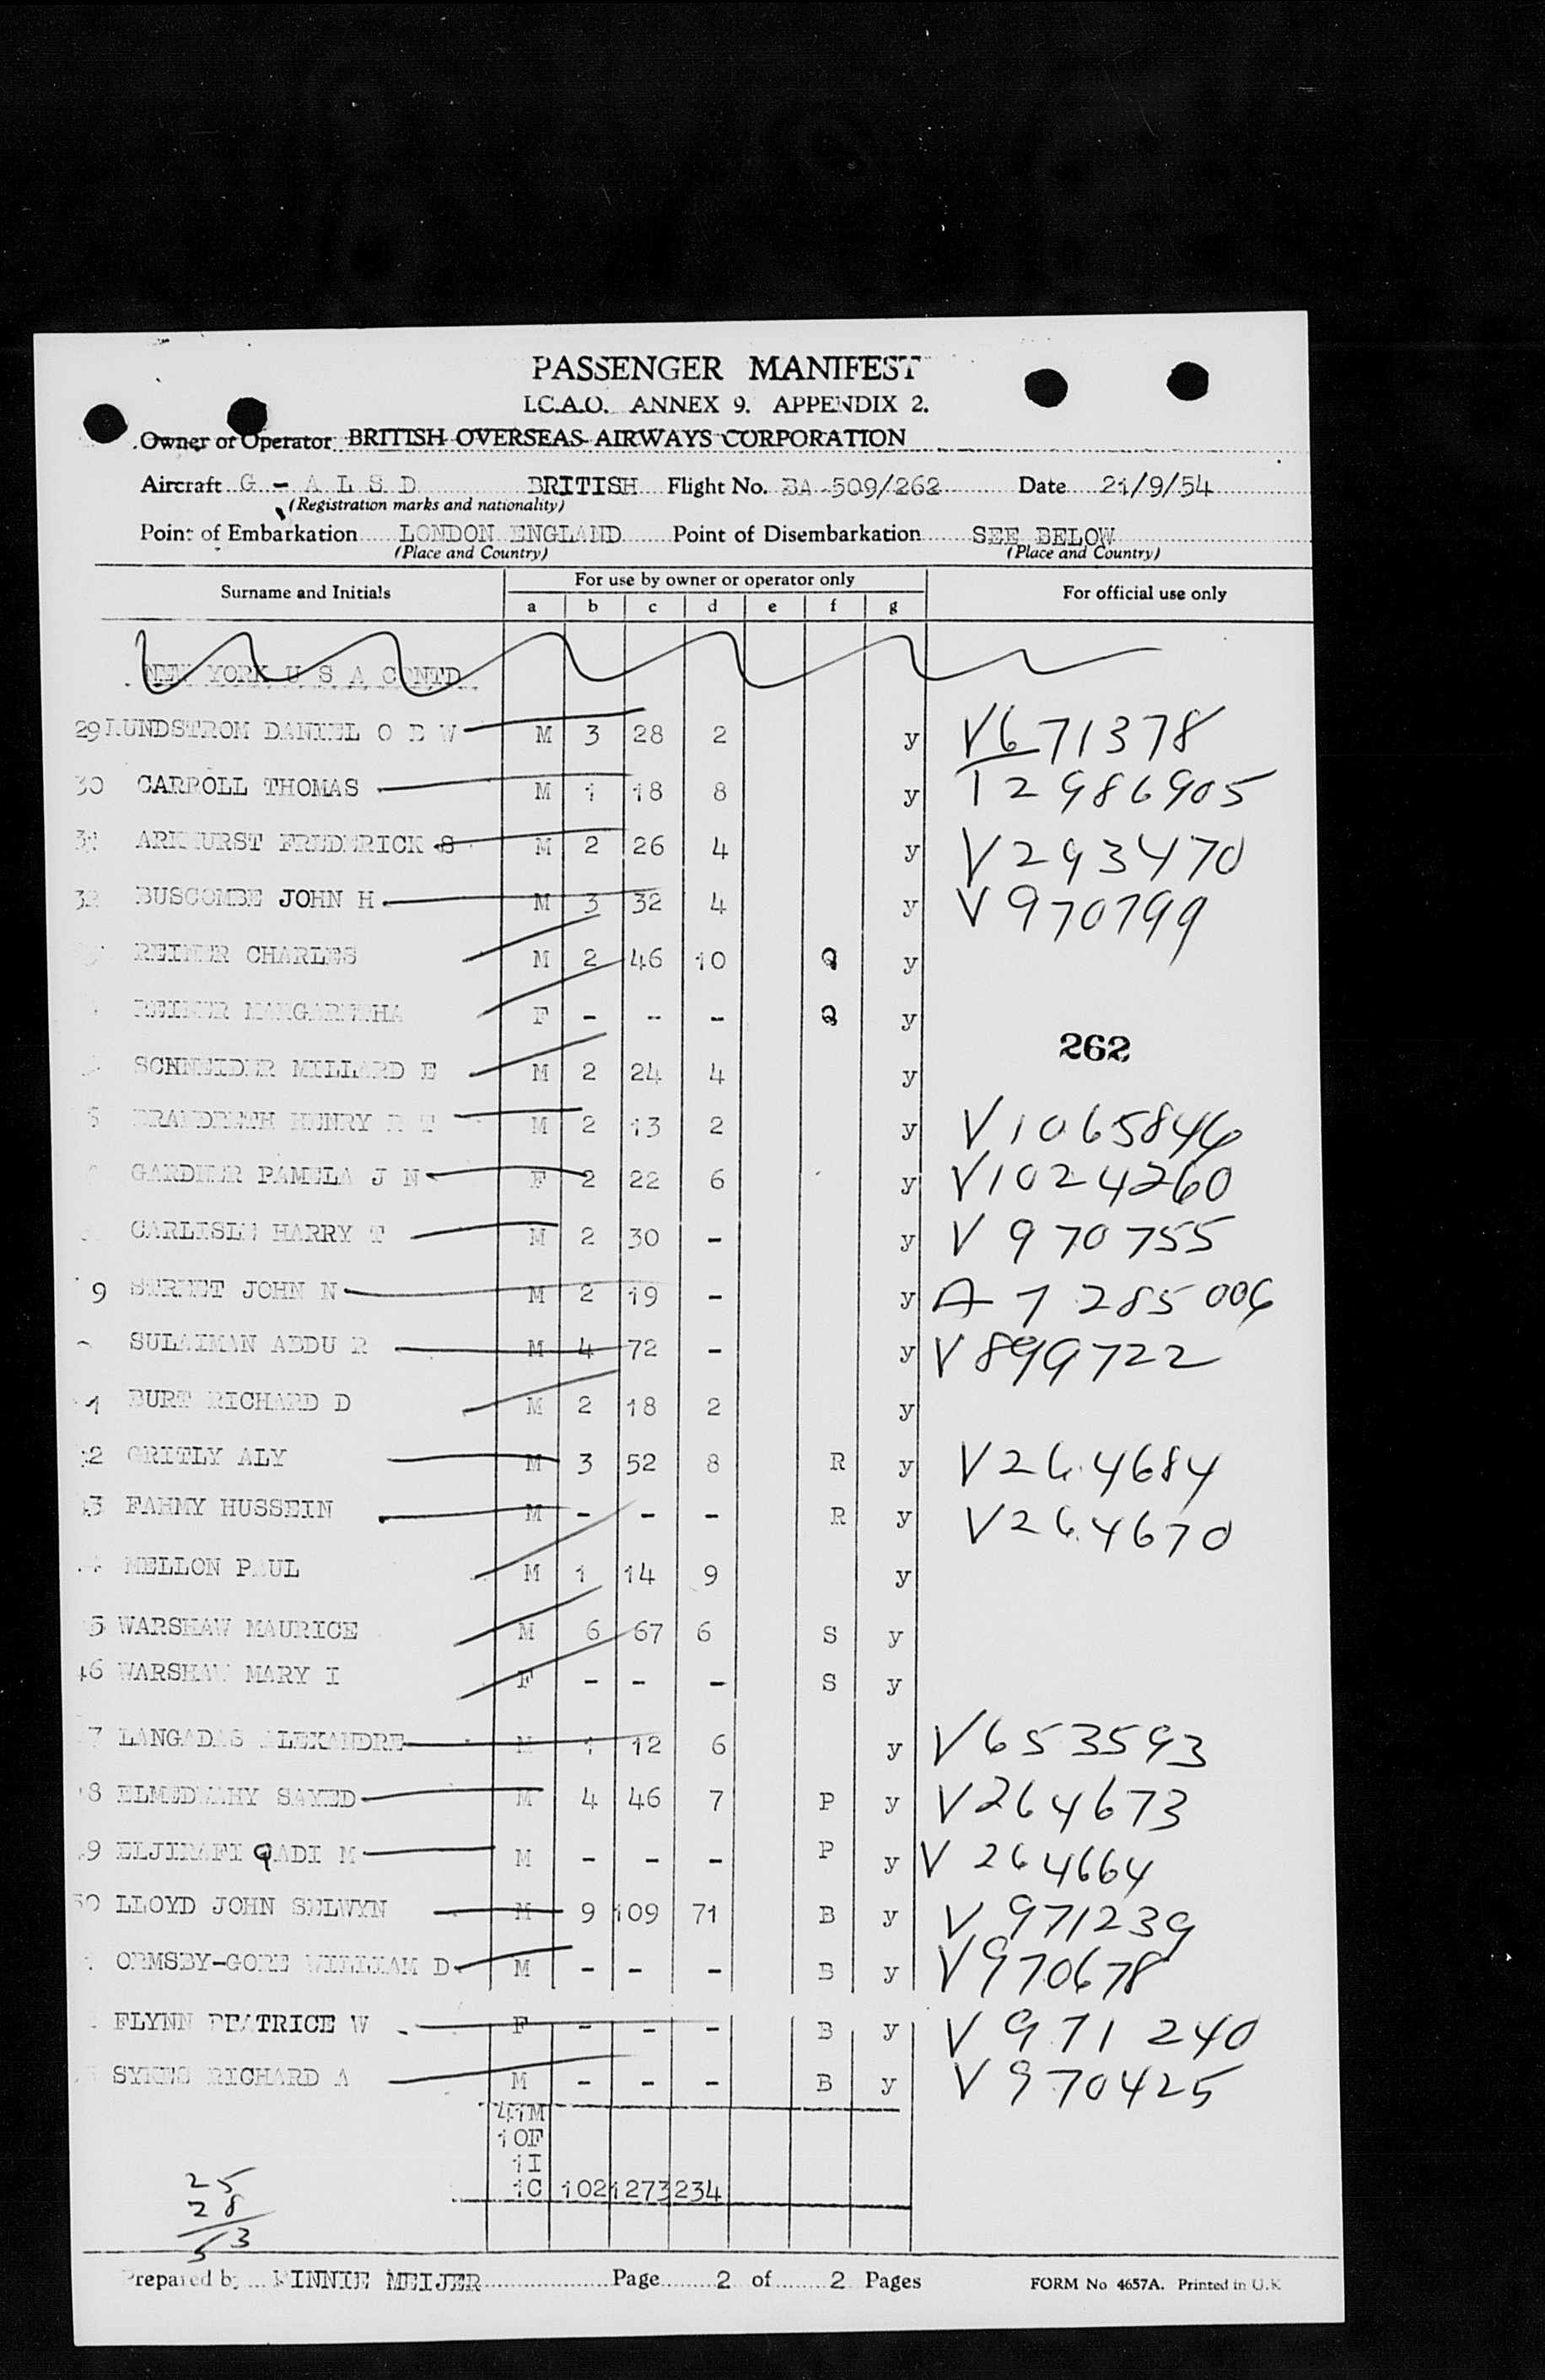 PASSENGER MANIFEST
I.C.A.O. ANNEX 9. APPENDIX 2.
Owner or Operator BRITISH OVERSEAS AIRWAYS CORPORATION
Aircraft G - A L S D BRITISH Flight No. BA 509/262 Date 21/9/54
(Registration marks and nationality)
Point of Embarkation LONDON ENGLAND Point of Disembarkation SEE BELOW
(Place and Country) (Place and Country)
Surname and Initials For use by owner or operator only For official use only
a b c d e f g
NEW YORK U S A CONTD
29 LUNDSTROM DANIEL O E W M 3 28 2 y V671378
30 CARROLL THOMAS M 1 18 8 y T2986905
31 ARKHURST FREDERICK S M 2 26 4 y V293470
32 BUSCOMBE JOHN H M 3 32 4 y V970799
REIMER CHARLES M 2 46 10 Q y
REIMER MARGARETHA F - - - Q y
262
SCHNEIDER MILLARD E M 2 24 4 y
BRANDRETH HENRY R T M 2 13 2 y V1065846
GARDNER PAMELA J N F 2 22 6 y V1024260
CARLISLE HARRY T M 2 30 - y V970755
9 STREET JOHN N M 2 19 - y A 7 285 006
SULAIMAN ABDU R M 4 72 - y V899722
1 BURT RICHARD D M 2 18 2 y
2 GRITLY ALY M 3 52 8 R y V264684
3 FAHMY HUSSEIN M - - - R y V264670
MELLON PAUL M 1 14 9 y
5 WARSHAW MAURICE M 6 67 6 S y
46 WARSHAW MARY I F - - - S y
7 LANGADAS ALEXANDRE M 1 12 6 y V653593
8 ELMEDMAHY SAYED M 4 46 7 P y V264673
9 QADI M M - - - P y V264664
50 LLOYD JOHN SELWYN M 9 109 71 B y V971239
ORMSBY-GORE WILLIAM D M - - - B y V970678
FLYNN BEATRICE W F - - - B y V971240
SYKES RICHARD A M - - - B y V970425
41M
10F
1I
1C 102 1273 234
25
28
53
Prepared by MINNIE MEIJER Page 2 of 2 Pages FORM No 4657A. Printed in U.K